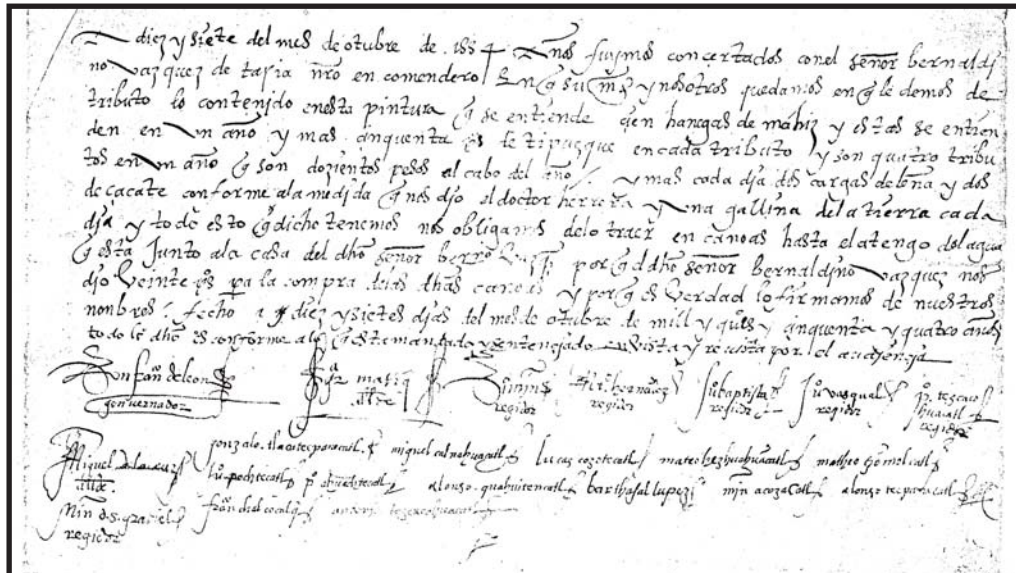 diez y siete del mes de otubre de .1554 Años fuymos concertados con el señor bernaldi
no vazquez de tapia nro en comendero En q su m y nosotros quedamos en q le demos de
tributo lo contenido en esta pintura q se entiende cien hanegas de mahiz y estas se entien
den en Un año y mas cinquenta ps de tipusque en cada tributo y son quatro tribu
tos en Un año q son dozientos pesos al cabo del año / y mas cada dia dos cargas de leña y dos
de çacate conforme a la medida q nos dio el doctor herrera y Una gallina de la tierra cada
dia y todo esto q dicho tenemos nos obligamos de lo traer en canoas hasta el atengo del agua
q esta Junto a la casa del dho señor por q el dho señor bernaldino Vazquez nos
dio Veinte ps pa la compra de las dhas canoas y por q es Verdad lo firmamos de nuestros
nonbres / fecho a diez y siete dias del mes de otubre de mill y qus y cinquenta y quatro años
todo lo dho es conforme a lo q esta mandado y sentenciado en Vista y revista por el audiencia
Don fan de leon
gouernador
matin
allde
regidor
hernandez
regidor
Ju baptista
regidor
Ju pasqual
regidor
po tezcaco
huacatl
regidor
Miguel de la cruz
allde
gonzalo tlacatecpanecatl miguel calnahuacatl lucas cozotecatl mateo matheo
Ju pochtecatl po alonso quahuitencatl barthasal lupez min acozacatl alonso tecpanecatl
Min de s. graciel
regidor
fran antoni